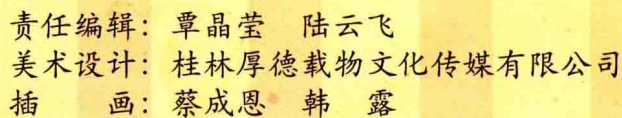 责任编辑：覃晶莹　陆云飞
美术设计：桂林厚德载物文化传媒有限公司
插　　画：蔡成恩　韩　露